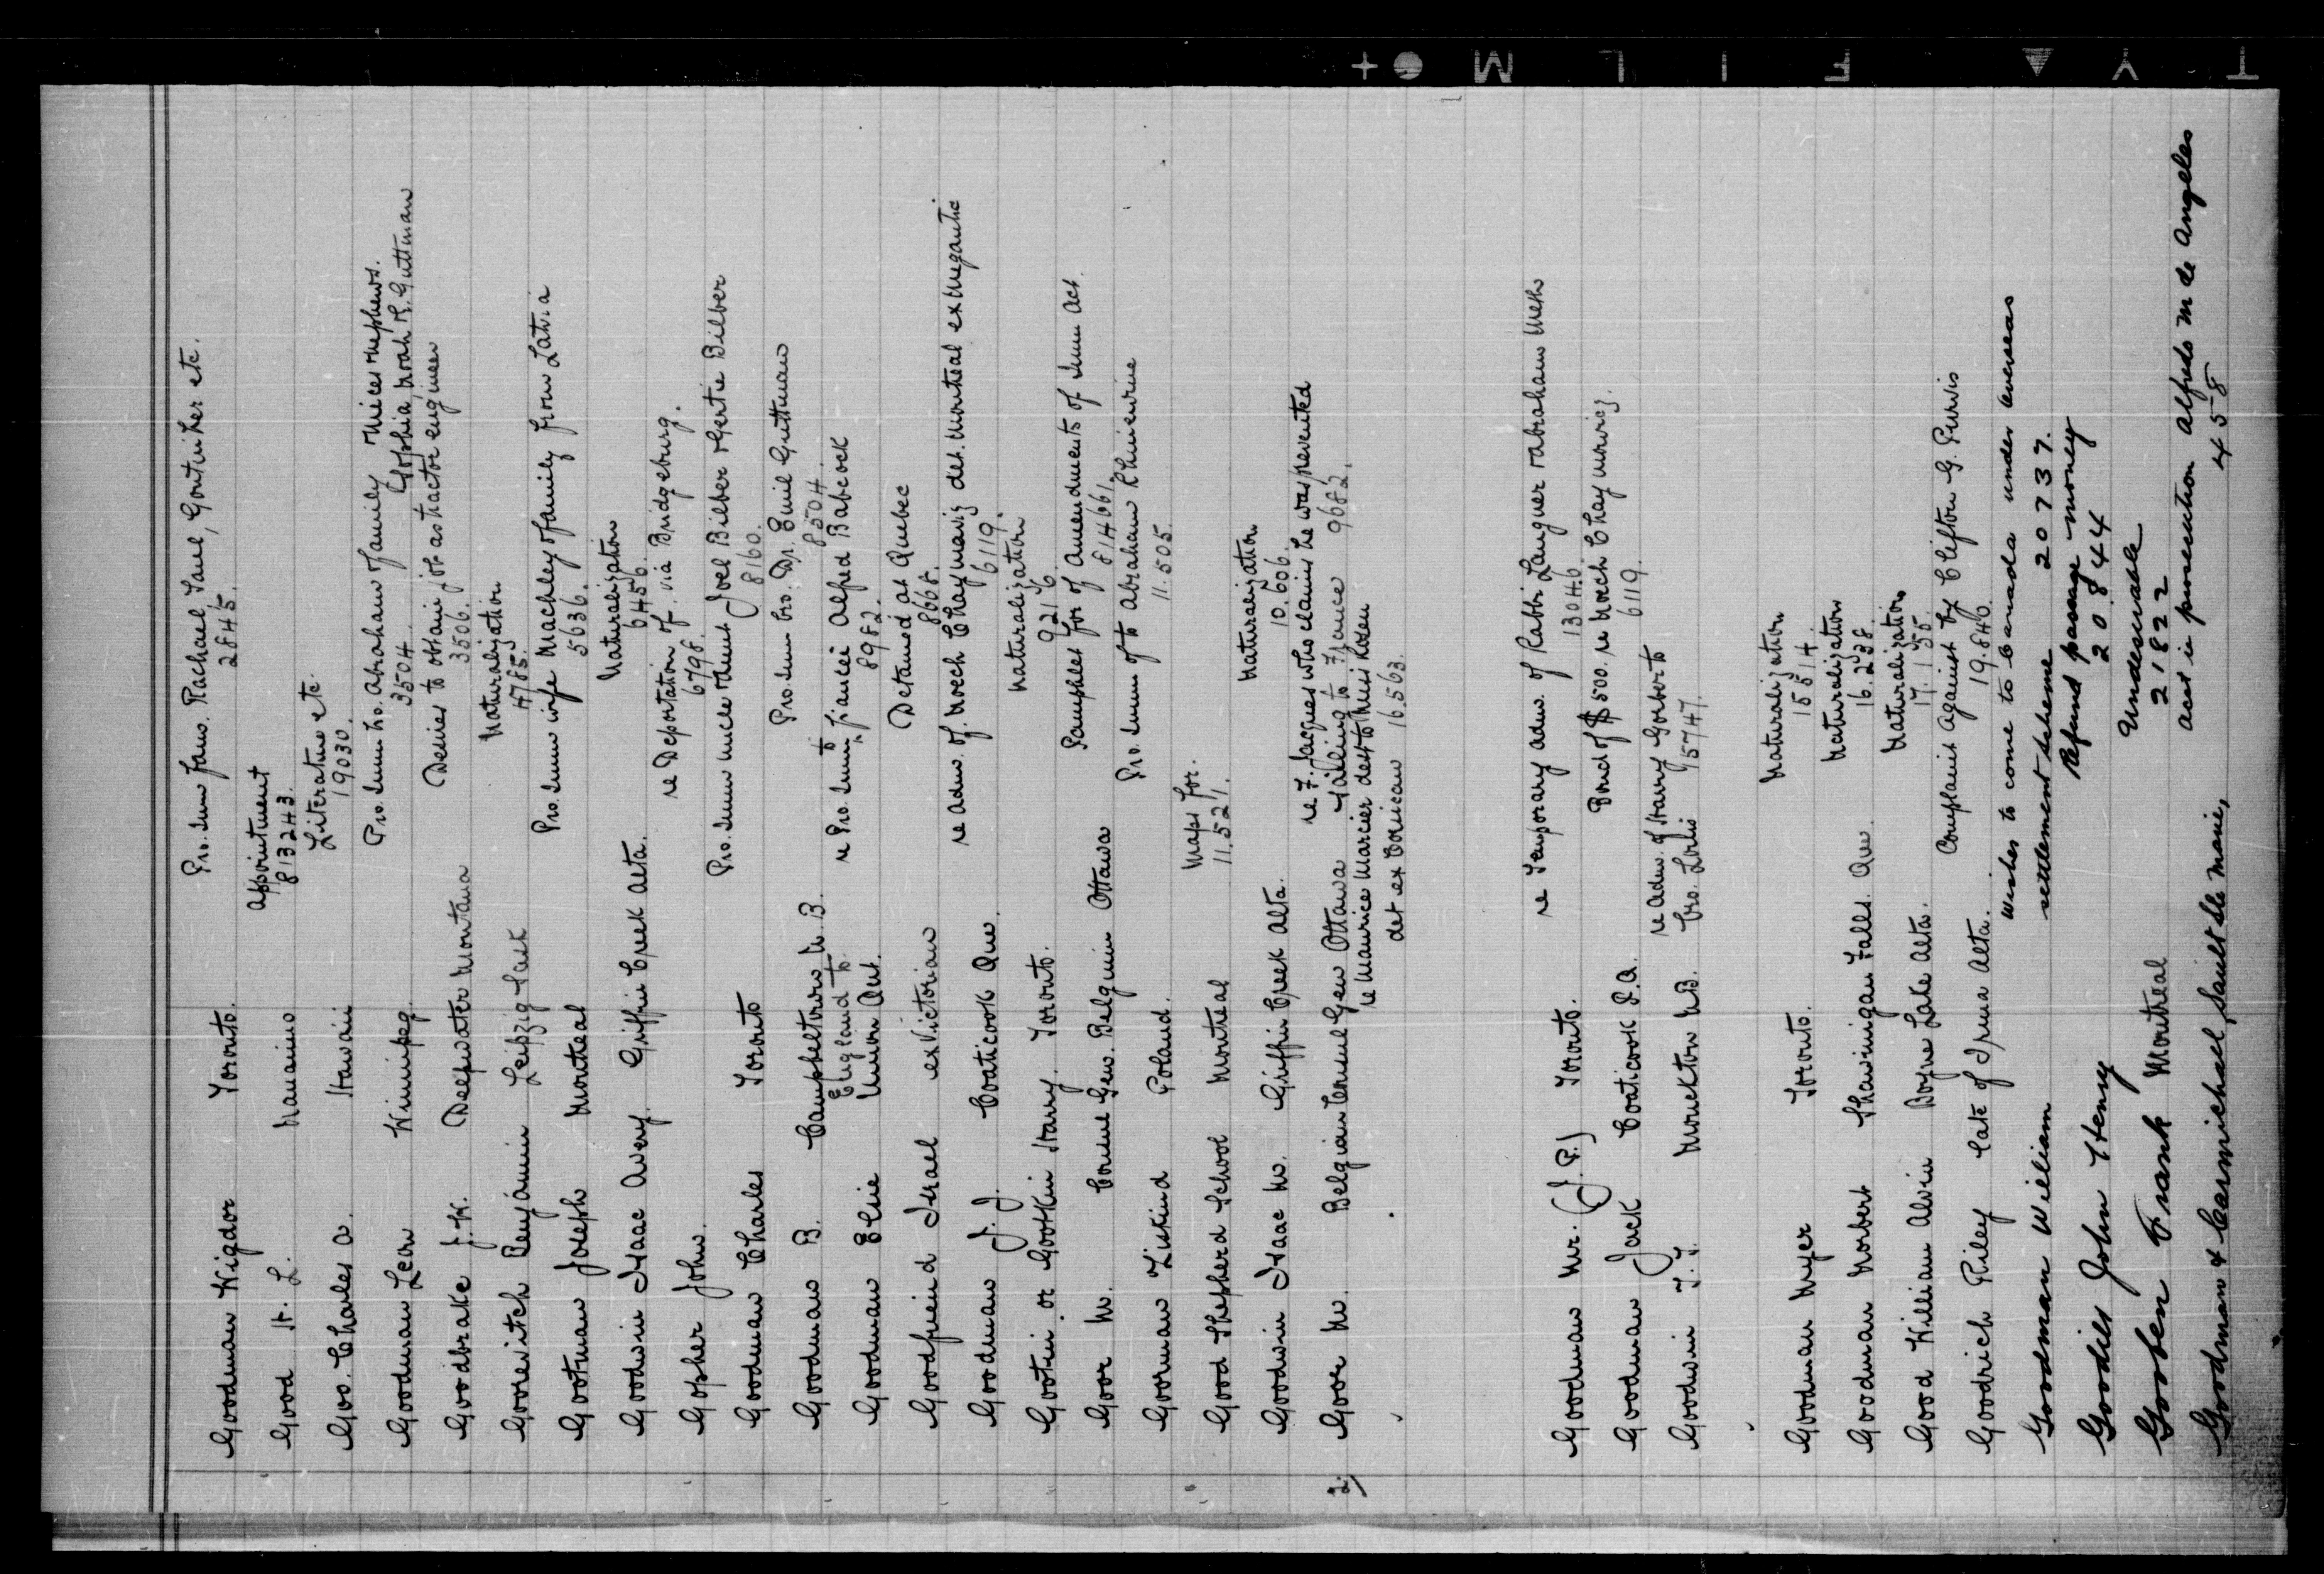 Goodman Wigdor Toronto. Pro. Imm fam. Rachael, Saul, Goutniher etc.
2845.
Good H. L. Nanaimo appointment
813243.
Goo. Charles A. Hawaii Literature etc.
19030.
Goodman Leon Winnipeg. Pro. Imm bro. Abraham & family & nieces & nephews.
3504. Sophia, Noah & R. Guttman
Goodbrake J. W. Deepwater Montana Desires to obtain job as tractor engineer
3506.
Goorevitch Benjamin Leipzig Sask Naturalization
4785.
Gootman Joseph Montreal Pro. Imm wife Machley & family from Latvia
5636.
Goodwin Isaac Avery. Griffin Creek Alta. Naturalization
6456.
Gopher John. re Deportation of. via Bridgeburg.
6798.
Goodman Charles Toronto Pro. Imm uncle & aunt Joel Bilber & Gertie Bilber
8160.
Goodman B. Campbeltown N. B. Pro. Imm bro. Dr. Emil Guttman
8504.
Goodman Elsie England to Union Ont. re Pro. Imm to fiancée Alfred Babcock
8982.
Goodfriend Israel ex Victorian Detained at Quebec
8668.
Goodman J. J. Coaticook Que. re adm. of. Moech Chaymovig det. Montreal ex Megantic
6119.
Gootin. or Gootkin Harry. Toronto. Naturalization
9216
Goor M. Consul Gen. Belgium Ottawa Pamphlet for of Amendments of Imm Act.
814661.
Goorman Ziskind Poland. Pro. Imm of to Abraham Rhinewine
11.505.
Good Shepherd School Montreal Maps for.
11.521.
Goodwin Isaac W. Griffin Creek Alta. Naturalization
10.606.
2/ Goor M. Belgian Consul Gen Ottawa re F. Jacques who claims he was prevented
sailing to France 9682.
re Maurice Marcier det to Miss Rosen
det ex Corsican 16.563.
Goodman Mr. (J. P.) Toronto. re Temporary adm. of Rabbi Langner & Abraham Meth
13046.
Goodman Jack Coaticook P.Q. Bond of $500. re Moech Chaymovicz.
6119.
Goodwin F. Y. Monckton N.B. re adm. of Harry Gorbort to
bro. Louis 15747.
Goodman Myer Toronto. Naturalization
15514.
Goodman Norbert Shawinigan Falls. Que. Naturalization
16.238.
Good William Alvin Boyne Lake Alta. Naturalization
17.155.
Goodrich Riley late of Irma Alta. Complaint against by Clifton G. Purvis
19.840.
Goodman William wishes to come to Canada under overseas
settlement scheme 20737.
Goodill John Henry Refund passage money
20844
Gooben Frank Montreal Undesirable
21822
Goodman & Carmichael, Sault Ste Marie, acct in prosecution Alfredo M de Angeles
458
FILM